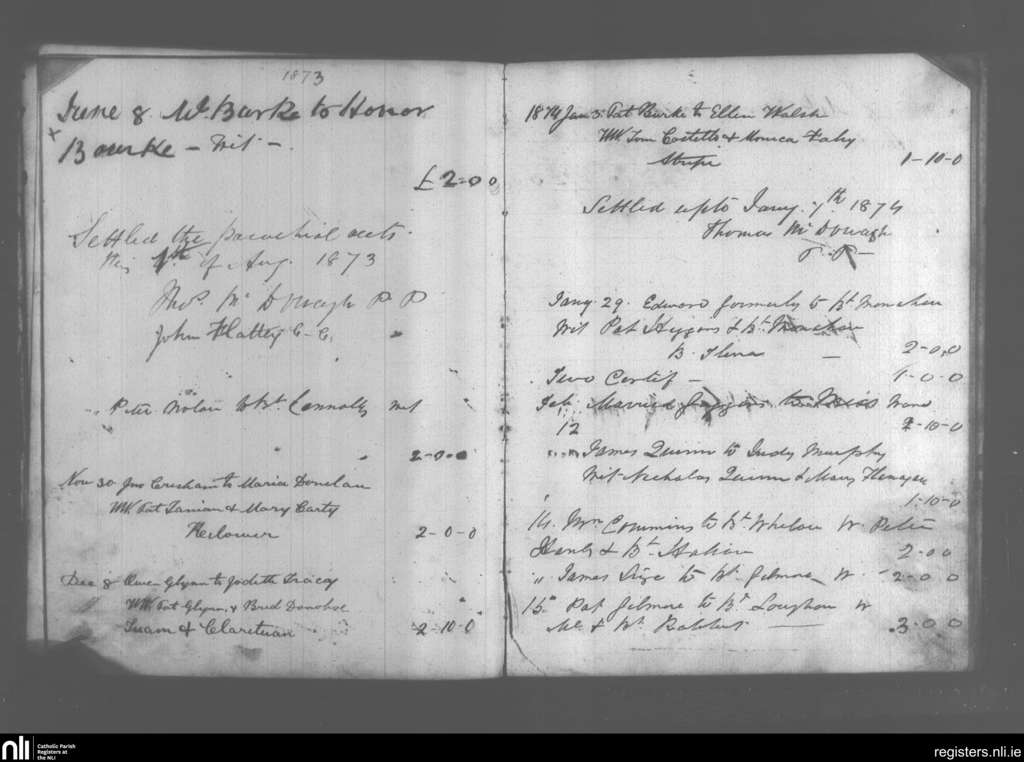 1873
June 8. Wm Burke to Honor
x
Bourke - Wit -
£2-0 0
Settled the parochial accts.
this 1th of Aug. 1873
Thos. McDonagh P P
John Flattery C. C.
Peter Nolan to Bt. Connolly Wit
2-0-0
Nov 30 Jno Cresham to Maria Donelan
WW. Pat & Mary Carty
2-0-0
Dec 8 Owen Glynn to Judith
WW. Pat Glynn, & Brid Donohoe
Tuam & Claretuam
2-10-0
1874 Jan 5. Pat Burke to Ellen Walsh
WW Tom Costello & Monica Fahy
1-10-0
Settled upto Jany. 7th 1874
Thomas McDonagh
P. P. -
Jany. 29. Edward to Bt Monahan
Wit Pat Higgins & Bt. Monahan
B. -
2-0,0
Two Certif -
1-0-0
Feb. Married to
12
-10-0
James Quinn to Judy Murphy
Wit Nicholas Quinn & Mary
1-10-0
14. Wm Commins to Bt Whelan W. Peter
& Bt.
2-0 0
" James to Bt. Gilmore W -
2-0 0
15" Pat Gilmore to Bt. Loughan W
& Bt.
3-0 0
nli
Catholic Parish
Registers at
the NLI
registers.nli.ie